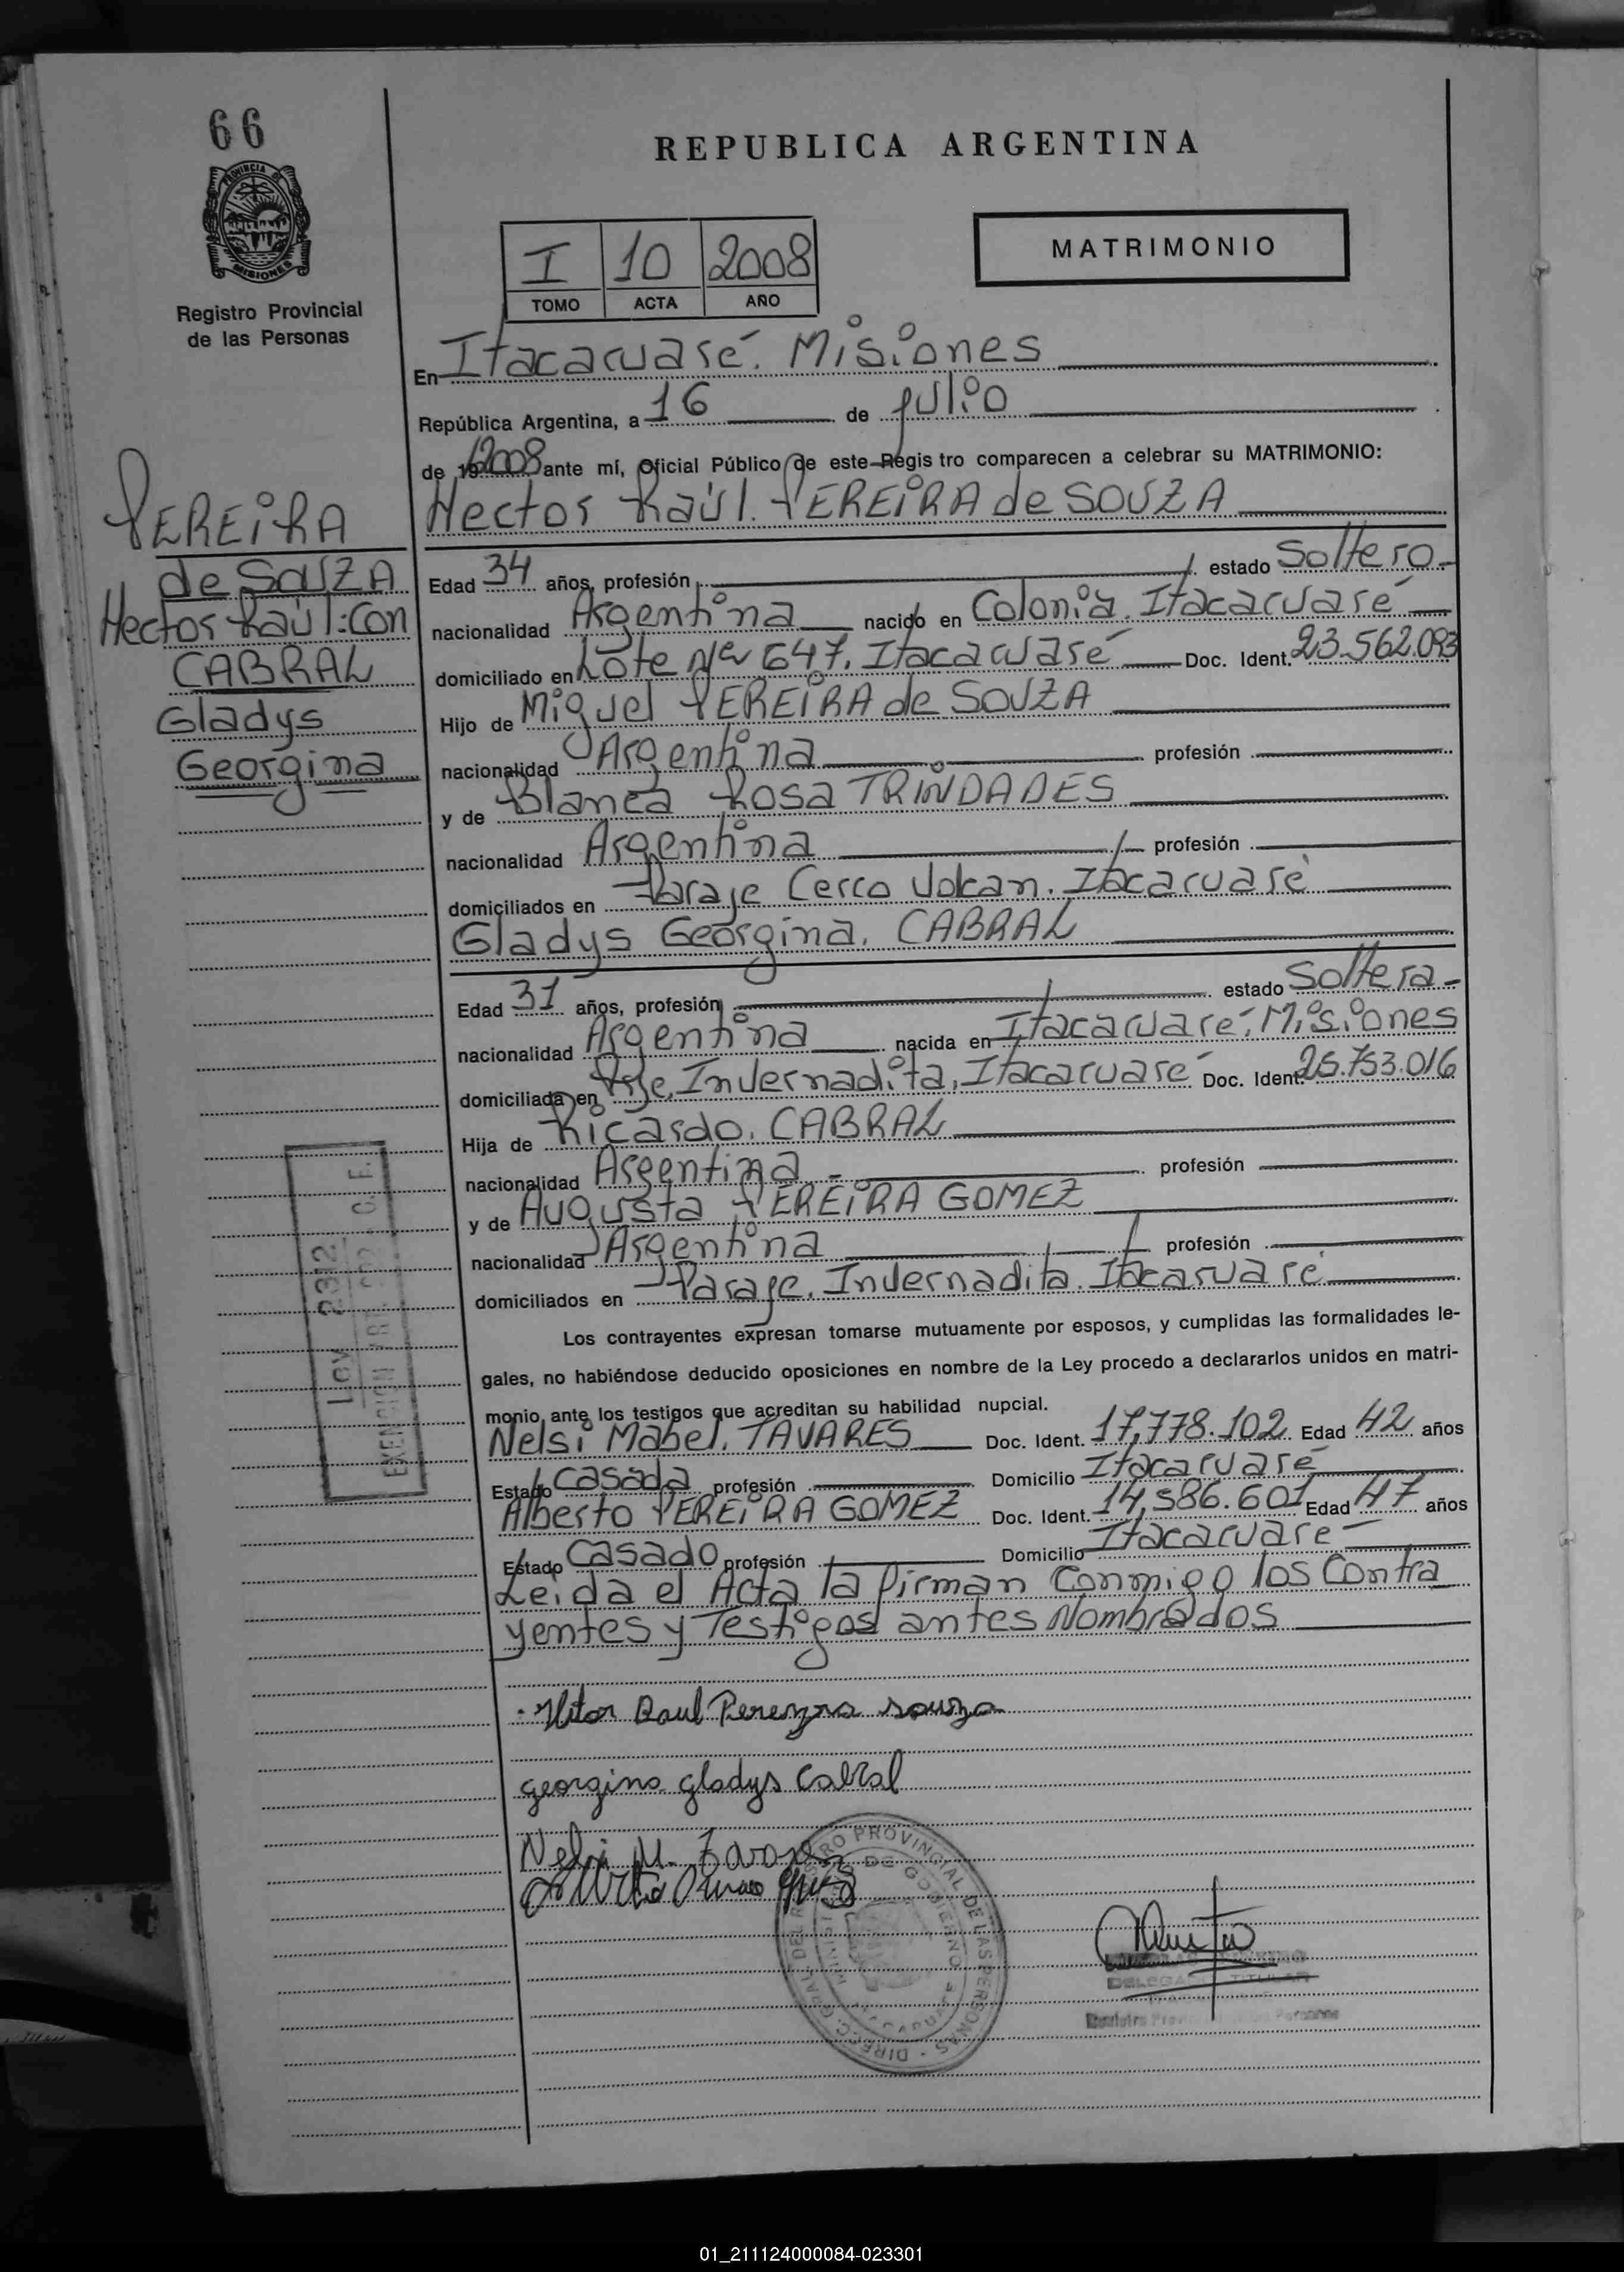 66
PROVINCIA DE
MISIONES
Registro Provincial
de las Personas
REPUBLICA ARGENTINA
I 10 2008
TOMO ACTA AÑO
MATRIMONIO
En Itacaruaré. Misiones
República Argentina, a 16 de julio
de 19 2008 ante mí, Oficial Público de este Regis tro comparecen a celebrar su MATRIMONIO:
Hector Raúl. PEREIRA de SOUZA
PEREIRA
de SOUZA
Hector Raúl: con
CABRAL
Gladys
Georgina
Edad 34 años, profesión estado Soltero
nacionalidad Argentina nacido en Colonia. Itacaruaré
domiciliado en Lote 647. Itacaruaré Doc. Ident. 23.562.093
Hijo de Miguel PEREIRA de SOUZA
nacionalidad Argentina profesión
y de Blanca Rosa TRINDADES
nacionalidad Argentina profesión
domiciliados en Paraje Cerro Volcan. Itacaruaré
Gladys Georgina. CABRAL
Edad 31 años, profesión estado Soltera
nacionalidad Argentina nacida en Itacaruaré. Misiones
domiciliada en Pje. Invernadita, Itacaruaré Doc. Ident. 25.753.016
Hija de Ricardo. CABRAL
nacionalidad Argentina profesión
y de Augusta PEREIRA GOMEZ
nacionalidad Argentina profesión
domiciliados en Paraje. Invernadita. Itacaruaré
Los contrayentes expresan tomarse mutuamente por esposos, y cumplidas las formalidades le-
gales, no habiéndose deducido oposiciones en nombre de la Ley procedo a declararlos unidos en matri-
monio ante los testigos que acreditan su habilidad nupcial.
Nelsi Mabel. TAVARES Doc. Ident. 17,778.102 Edad 42 años
Estado Casada profesión Domicilio Itacaruaré
Alberto PEREIRA GOMEZ Doc. Ident. 14,586.601 Edad 47 años
Estado Casado profesión Domicilio Itacaruaré
Leida el Acta la firman Conmigo los Contra
yentes y Testigos antes Nombrados
Ley 2312
EXENCION ART.
Hitor Raul Pereyra souza
georgina gladys Cabral
Nelsi M.
REGISTRO PROVINCIAL DE LAS PERSONAS
DE GOBIERNO
DELEGADO TITULAR
01_211124000084-023301